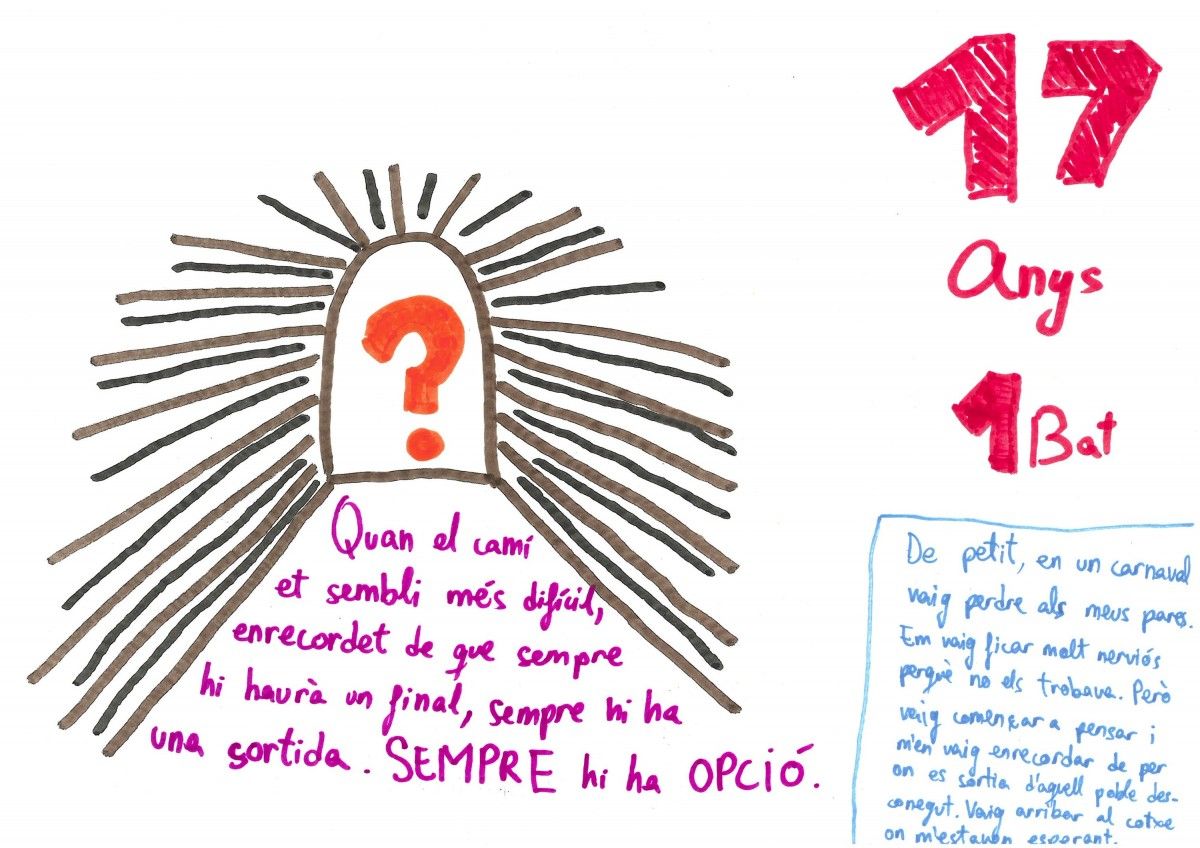 17
Anys
1 Bat
?
Quan el camí
et sembli més difícil,
enrecordet de que sempre
hi haurà un final, sempre hi ha
una sortida. SEMPRE hi ha OPCIÓ.
De petit, en un carnaval
vaig perdre als meus pares.
Em vaig ficar molt nerviós
perquè no els trobava. Però
vaig començar a pensar i
m'en vaig enrecordar de per
on es sortia d'aquell poble des-
conegut. Vaig arribar al cotxe
on m'estaven esperant.